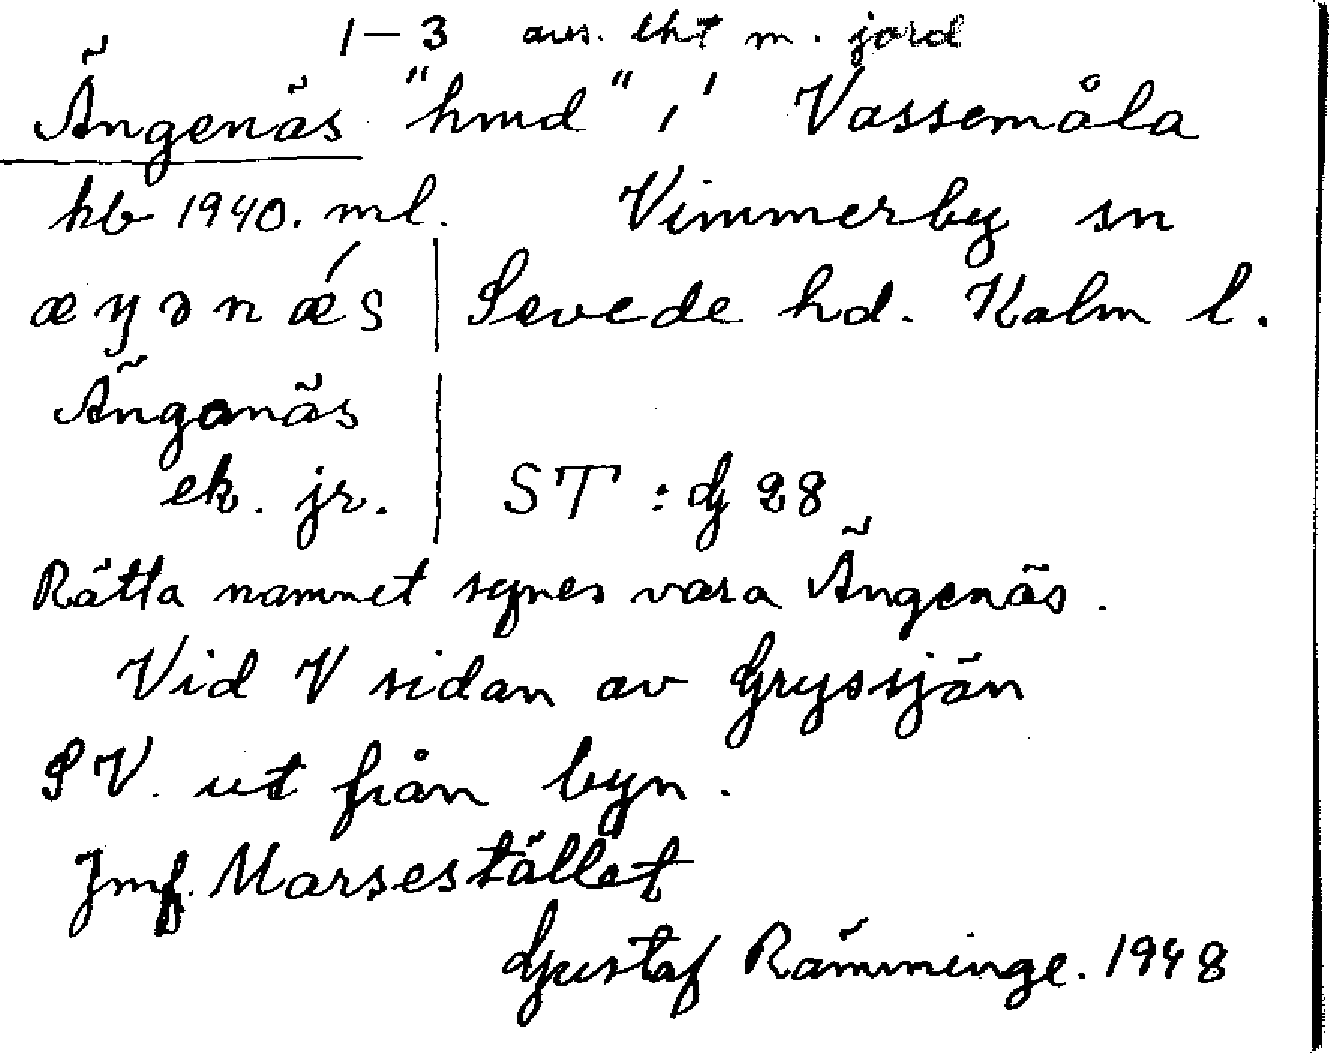 1–3 avs. lht m. jord
Ängenäs "hmd" i Vassemåla
hb 1940. ml. Vimmerby sn
æŋənǽs Sevede hd. Kalm l.
Änganäs
ek. jr. ST : G 28
Rätta namnet synes vara Ängenäs.
Vid V sidan av Gryssjön
SV. ut från byn.
Jmf. Marsestället
Gustaf Ramminge. 1948